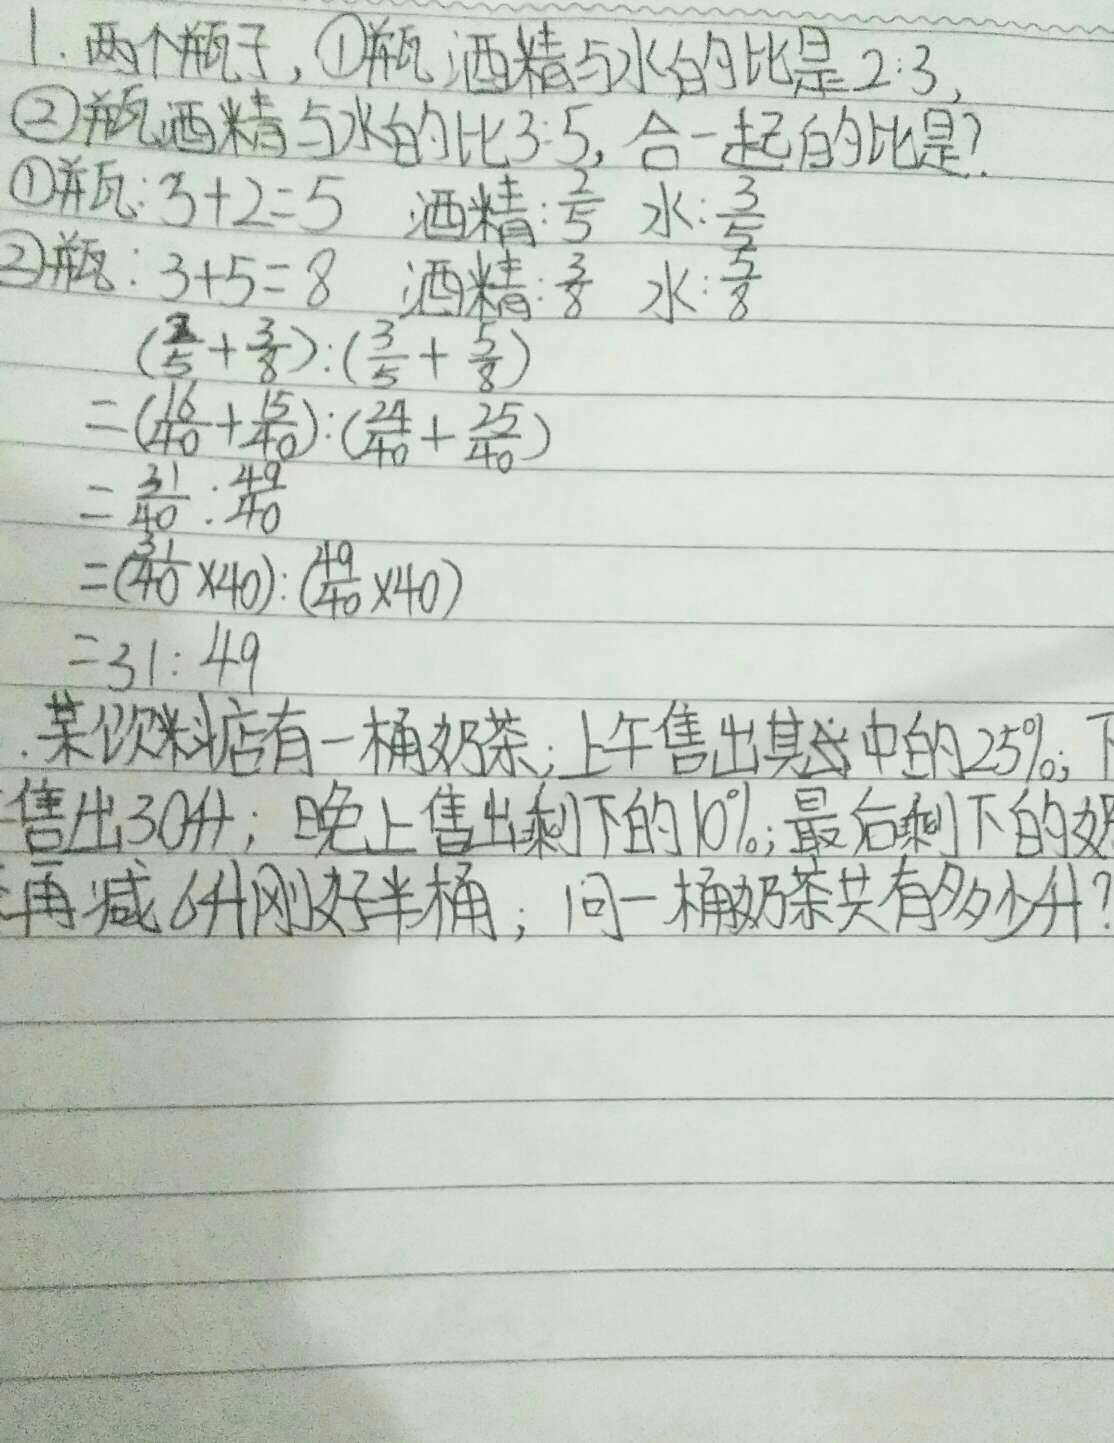 1. 两个瓶子, ①瓶酒精与水的比是2:3,
②瓶酒精与水的比3:5, 合一起的比是?
①瓶: 3+2=5 酒精: 2/5 水: 3/5
②瓶: 3+5=8 酒精: 3/8 水: 5/8
(2/5 + 3/8) : (3/5 + 5/8)
= (16/40 + 15/40) : (24/40 + 25/40)
= 31/40 : 49/40
= (31/40 ×40) : (49/40 ×40)
= 31 : 49
. 某饮料店有一桶奶茶; 上午售出其中的25%; 下
售出30升; 晚上售出剩下的10%; 最后剩下的奶
再减6升刚好半桶; 问一桶奶茶共有多少升?